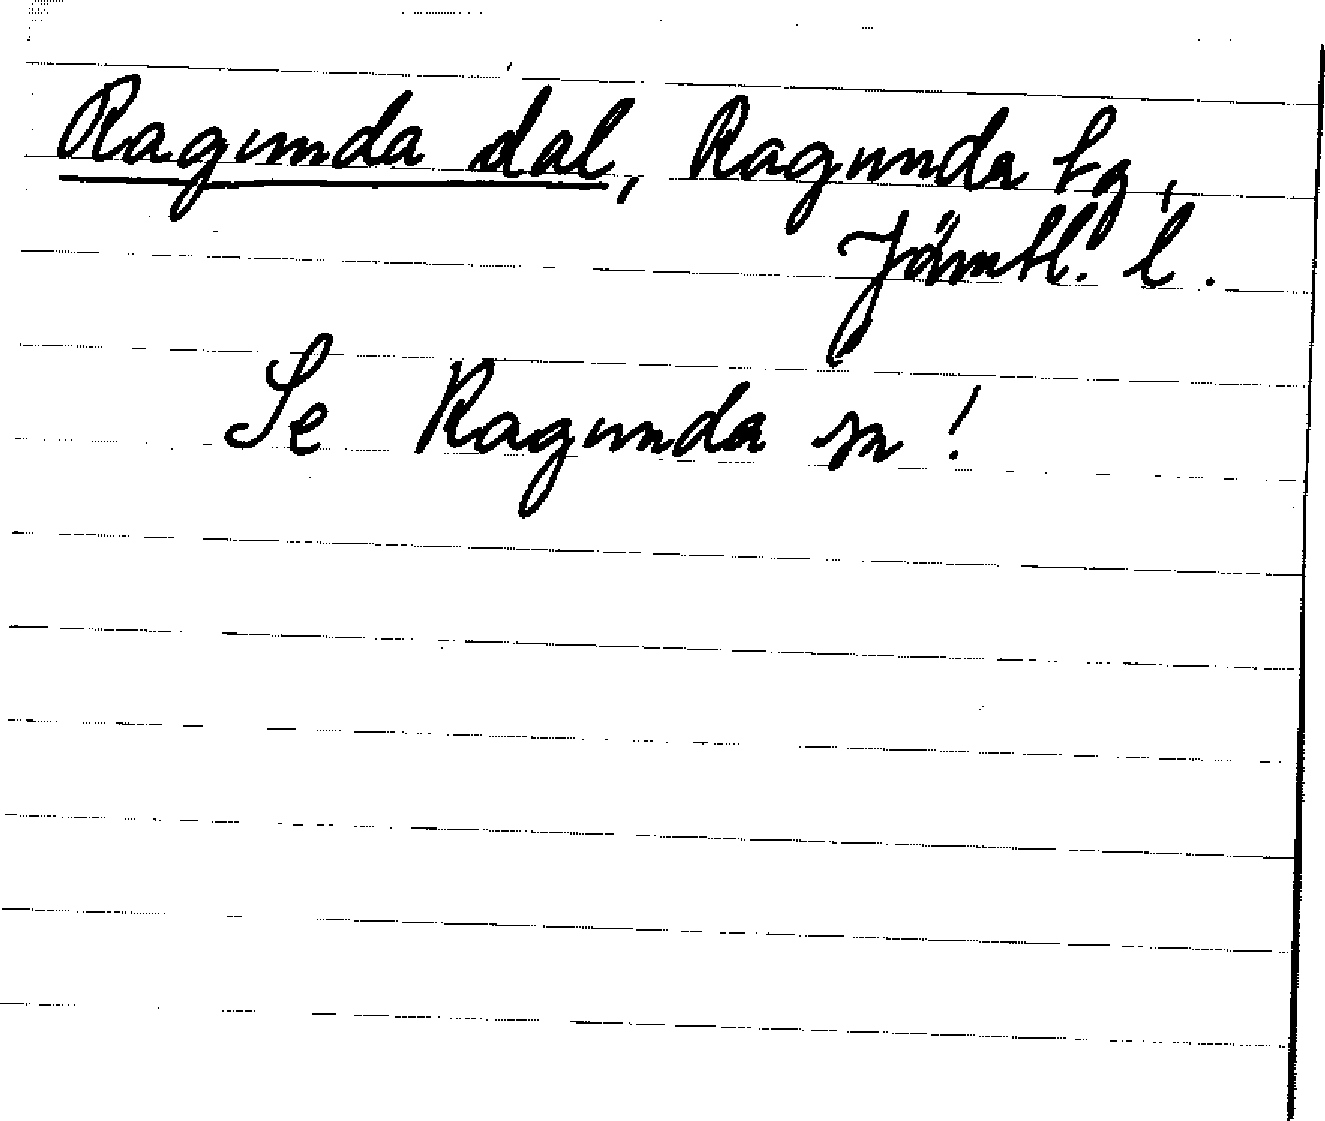 Ragunda dal, Ragunda tg,
Jämtl. l.
Se Ragunda sn!